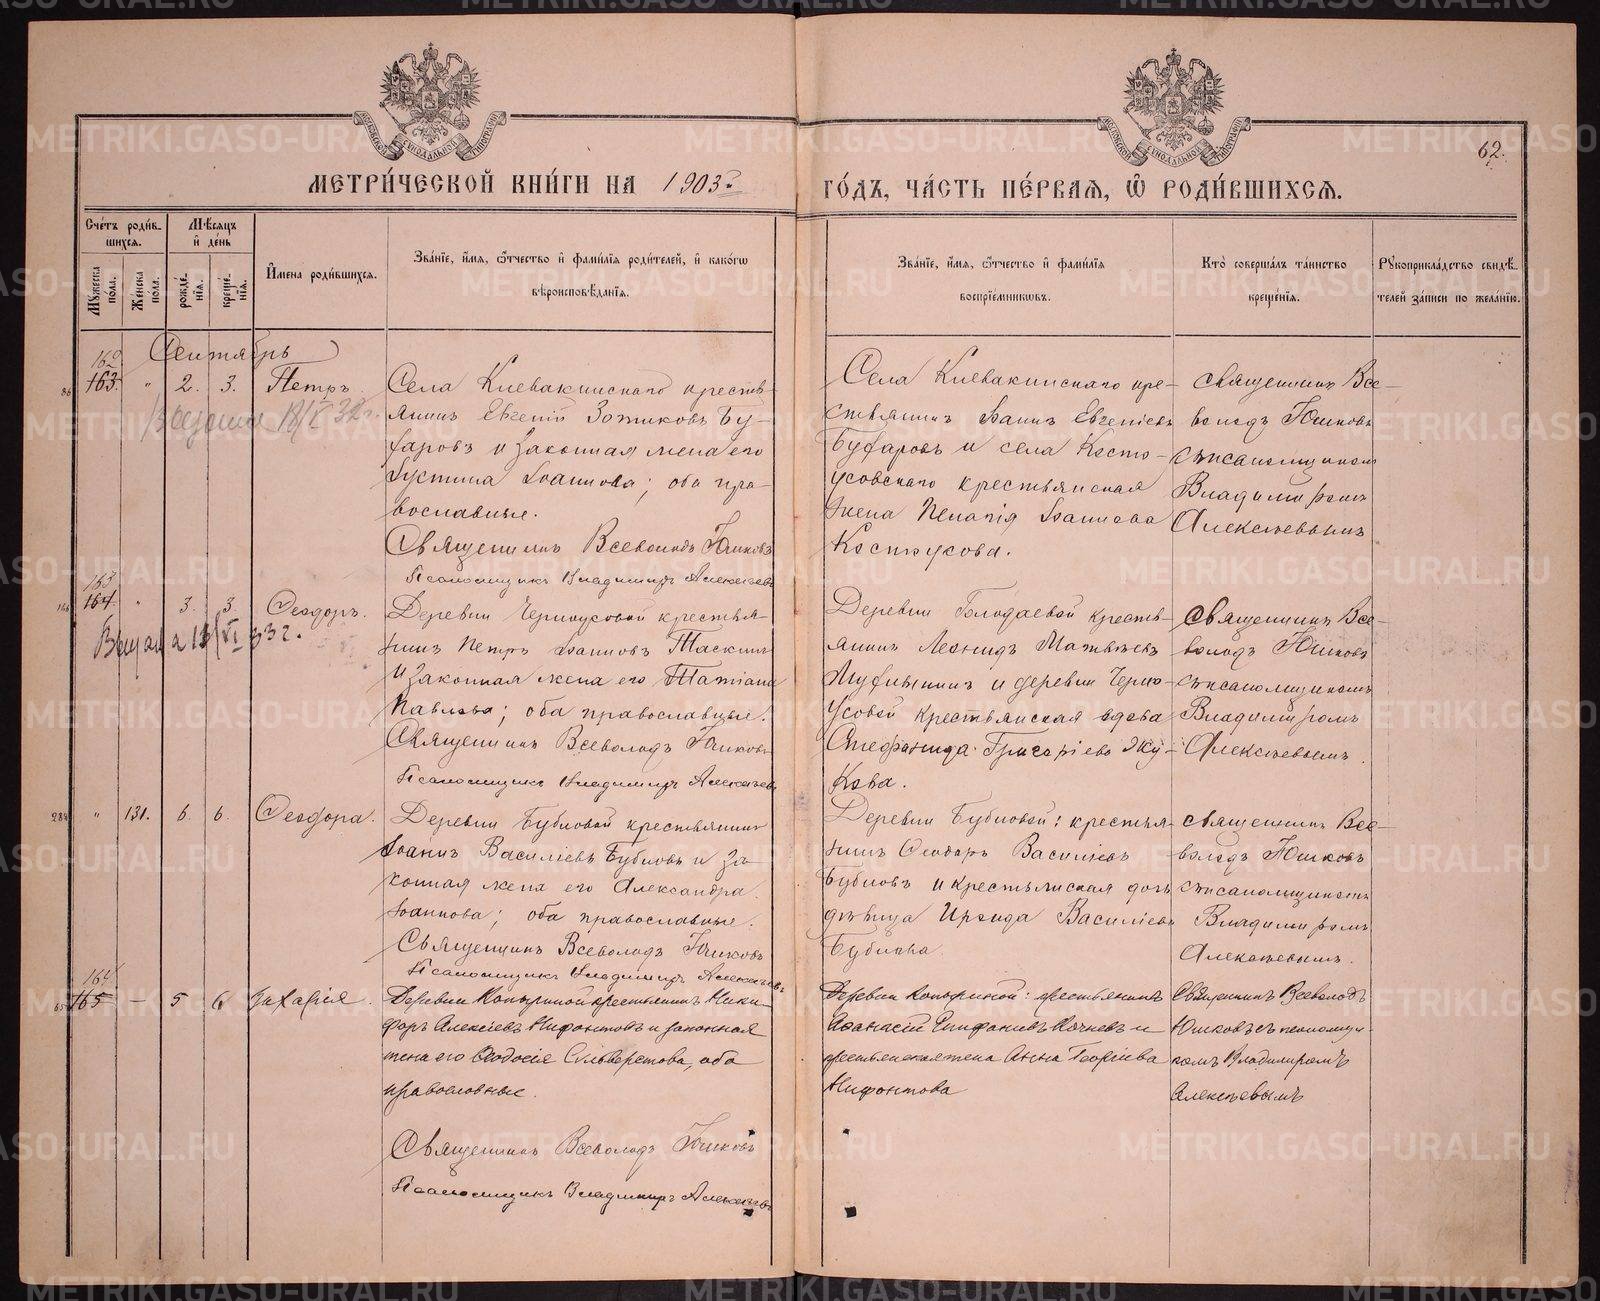 62.
МЕТРИ́ЧЕСКОЙ КНИ́ГИ НА 1903 г.
ГО́ДЪ, ЧА́СТЬ ПЕ́РВАЯ, Ѡ҆ РОДИ́ВШИХСѦ.
Сче́тъ роди́в-
шихсѧ.
Мѣ́сѧцъ
и҆ де́нь
Мꙋ́жеска
по́ла.
Же́нска
по́ла.
рожде́-
нїѧ.
креще́-
нїѧ.
И҆мена роди́вшихсѧ.
Зва́нїе, и҆́мѧ, ѻ҆́тчество и҆ фами́лїѧ роди́телей, и҆ како́гѡ
вѣроисповѣ́данїѧ.
Зва́нїе, и҆́мѧ, ѻ҆́тчество и҆ фами́лїѧ
воспрїе́мникѡвъ.
Кто̀ соверша́лъ та́инство
креще́нїѧ.
Рꙋкоприкла́дство свидѣ́-
телей за́писи по жела́нїю.
Сентябрь
162
163. " 2. 3. Петръ
Села Клевакинскаго кресть-
янинъ Евгеній Зотиковъ Бу-
фаровъ и законная жена его
Іустина Іоаннова; оба пра-
вославные.
Священникъ Всеволодъ Юшковъ
Псаломщикъ Владимиръ Алексѣевъ
Села Клевакинскаго кре-
стьянинъ Іоаннъ Евгеніевъ
Буфаровъ и села Косто-
усовскаго крестьянская
жена Пелагія Іоаннова
Костоусова.
священникъ Все-
володъ Юшковъ
съ псаломщикомъ
Владимиромъ
Алексѣевымъ
163
164. " 3. 3. Ѳеодоръ.
Деревни Черноусовой крестья-
нинъ Петръ Іоанновъ Таскинъ
и законная жена его Татіана
Павлова; оба православные.
Священникъ Всеволодъ Юшковъ
Псаломщикъ Владимиръ Алексѣевъ
Деревни Голодаевой кресть-
янинъ Леонидъ Матвѣевъ
и деревни Черно-
усовой крестьянская вдова
Стефанида Григоріева Жу-
кова.
священникъ Все-
володъ Юшковъ
съ псаломщикомъ
Владимиромъ
Алексѣевымъ.
" 131. 6. 6. Ѳеодора.
Деревни Бубновой крестьянинъ
Іоаннъ Василіевъ Бубновъ и за-
конная жена его Александра
Іоаннова; оба православные.
Священникъ Всеволодъ Юшковъ
Псаломщикъ Владимиръ Алексѣевъ
Деревни Бубновой: крестья-
нинъ Ѳеодоръ Василіевъ
Бубновъ и крестьянская дочь
дѣвица Ираида Василіева
Бубнова
священникъ Все-
володъ Юшковъ
съ псаломщикомъ
Владимиромъ
Алексѣевымъ.
164
165 — 5 6 Захарія.
Деревни Копыриной крестьянинъ Ники-
форъ Алексѣевъ Нифонтовъ и законная
жена его Ѳеодосія Сильверстова, оба
православные.
Священникъ Всеволодъ Юшковъ
Псаломщикъ Владимиръ Алексѣевъ
Деревни Копыриной: крестьянинъ
Аѳанасій Епифаніевъ Кочневъ и
крестьянская жена Анна Георгіева
Нифонтова
Священникъ Всеволодъ
Юшковъ съ псаломщи-
комъ Владимиромъ
Алексѣевымъ
METRIKI.GASO-URAL.RU